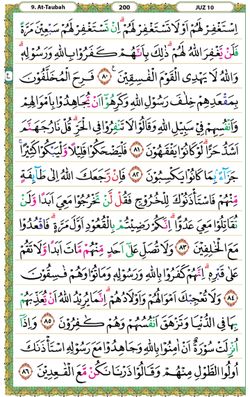 9. At-Taubah 200 JUZ 10
اِسْتَغْفِرْ لَهُمْ اَوْ لَا تَسْتَغْفِرْ لَهُمْ اِنْ تَسْتَغْفِرْ لَهُمْ سَبْعِيْنَ مَرَّةً
فَلَنْ يَّغْفِرَ اللّٰهُ لَهُمْ ذٰلِكَ بِاَنَّهُمْ كَفَرُوْا بِاللّٰهِ وَرَسُوْلِهٖ
وَاللّٰهُ لَا يَهْدِى الْقَوْمَ الْفٰسِقِيْنَ ٨٠ فَرِحَ الْمُخَلَّفُوْنَ
بِمَقْعَدِهِمْ خِلٰفَ رَسُوْلِ اللّٰهِ وَكَرِهُوْٓا اَنْ يُّجَاهِدُوْا بِاَمْوَالِهِمْ
وَاَنْفُسِهِمْ فِيْ سَبِيْلِ اللّٰهِ وَقَالُوْا لَا تَنْفِرُوْا فِى الْحَرِّ قُلْ نَارُ جَهَنَّمَ
اَشَدُّ حَرًّا لَوْ كَانُوْا يَفْقَهُوْنَ ٨١ فَلْيَضْحَكُوْا قَلِيْلًا وَّلْيَبْكُوْا كَثِيْرًا
جَزَاۤءً بِمَا كَانُوْا يَكْسِبُوْنَ ٨٢ فَاِنْ رَّجَعَكَ اللّٰهُ اِلٰى طَاۤىِٕفَةٍ
مِّنْهُمْ فَاسْتَأْذَنُوْكَ لِلْخُرُوْجِ فَقُلْ لَّنْ تَخْرُجُوْا مَعِيَ اَبَدًا وَّلَنْ
تُقَاتِلُوْا مَعِيَ عَدُوًّا اِنَّكُمْ رَضِيْتُمْ بِالْقُعُوْدِ اَوَّلَ مَرَّةٍ فَاقْعُدُوْا
مَعَ الْخٰلِفِيْنَ ٨٣ وَلَا تُصَلِّ عَلٰٓى اَحَدٍ مِّنْهُمْ مَّاتَ اَبَدًا وَّلَا تَقُمْ
عَلٰى قَبْرِهٖ اِنَّهُمْ كَفَرُوْا بِاللّٰهِ وَرَسُوْلِهٖ وَمَاتُوْا وَهُمْ فٰسِقُوْنَ
٨٤ وَلَا تُعْجِبْكَ اَمْوَالُهُمْ وَاَوْلَادُهُمْ اِنَّمَا يُرِيْدُ اللّٰهُ اَنْ يُّعَذِّبَهُمْ
بِهَا فِى الدُّنْيَا وَتَزْهَقَ اَنْفُسُهُمْ وَهُمْ كٰفِرُوْنَ ٨٥ وَاِذَآ
اُنْزِلَتْ سُوْرَةٌ اَنْ اٰمِنُوْا بِاللّٰهِ وَجَاهِدُوْا مَعَ رَسُوْلِهِ اسْتَأْذَنَكَ
اُولُوا الطَّوْلِ مِنْهُمْ وَقَالُوْا ذَرْنَا نَكُنْ مَّعَ الْقٰعِدِيْنَ ٨٦